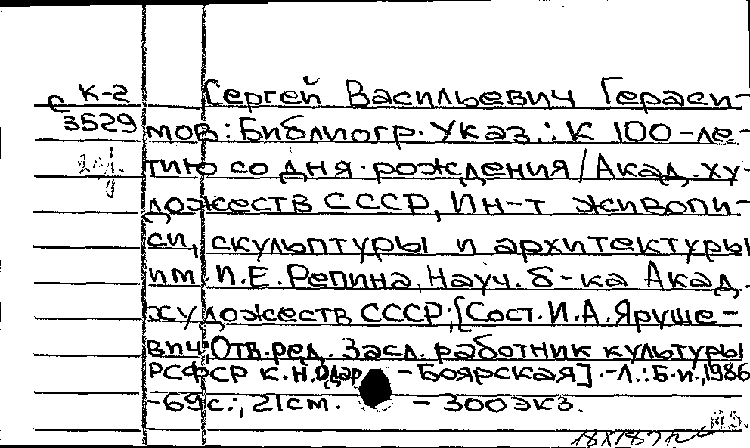 с К-2
3529
Сергей Васильевич Гераси-
мов: Библиогр. Указ.: К 100-ле-
тию со дня рождения / Акад. ху-
дожеств СССР, Ин-т живопи-
си, скульптуры и архитектуры
им. И.Е. Репина, Науч. б-ка Акад.
художеств СССР; [Сост. И.А. Яруше-
вич; Отв. ред. Засл. работник культуры
РСФСР К.Н. Одар - Боярская]. - Л.: Б.и., 1986
- 69 с.; 21 см. - 300 экз.